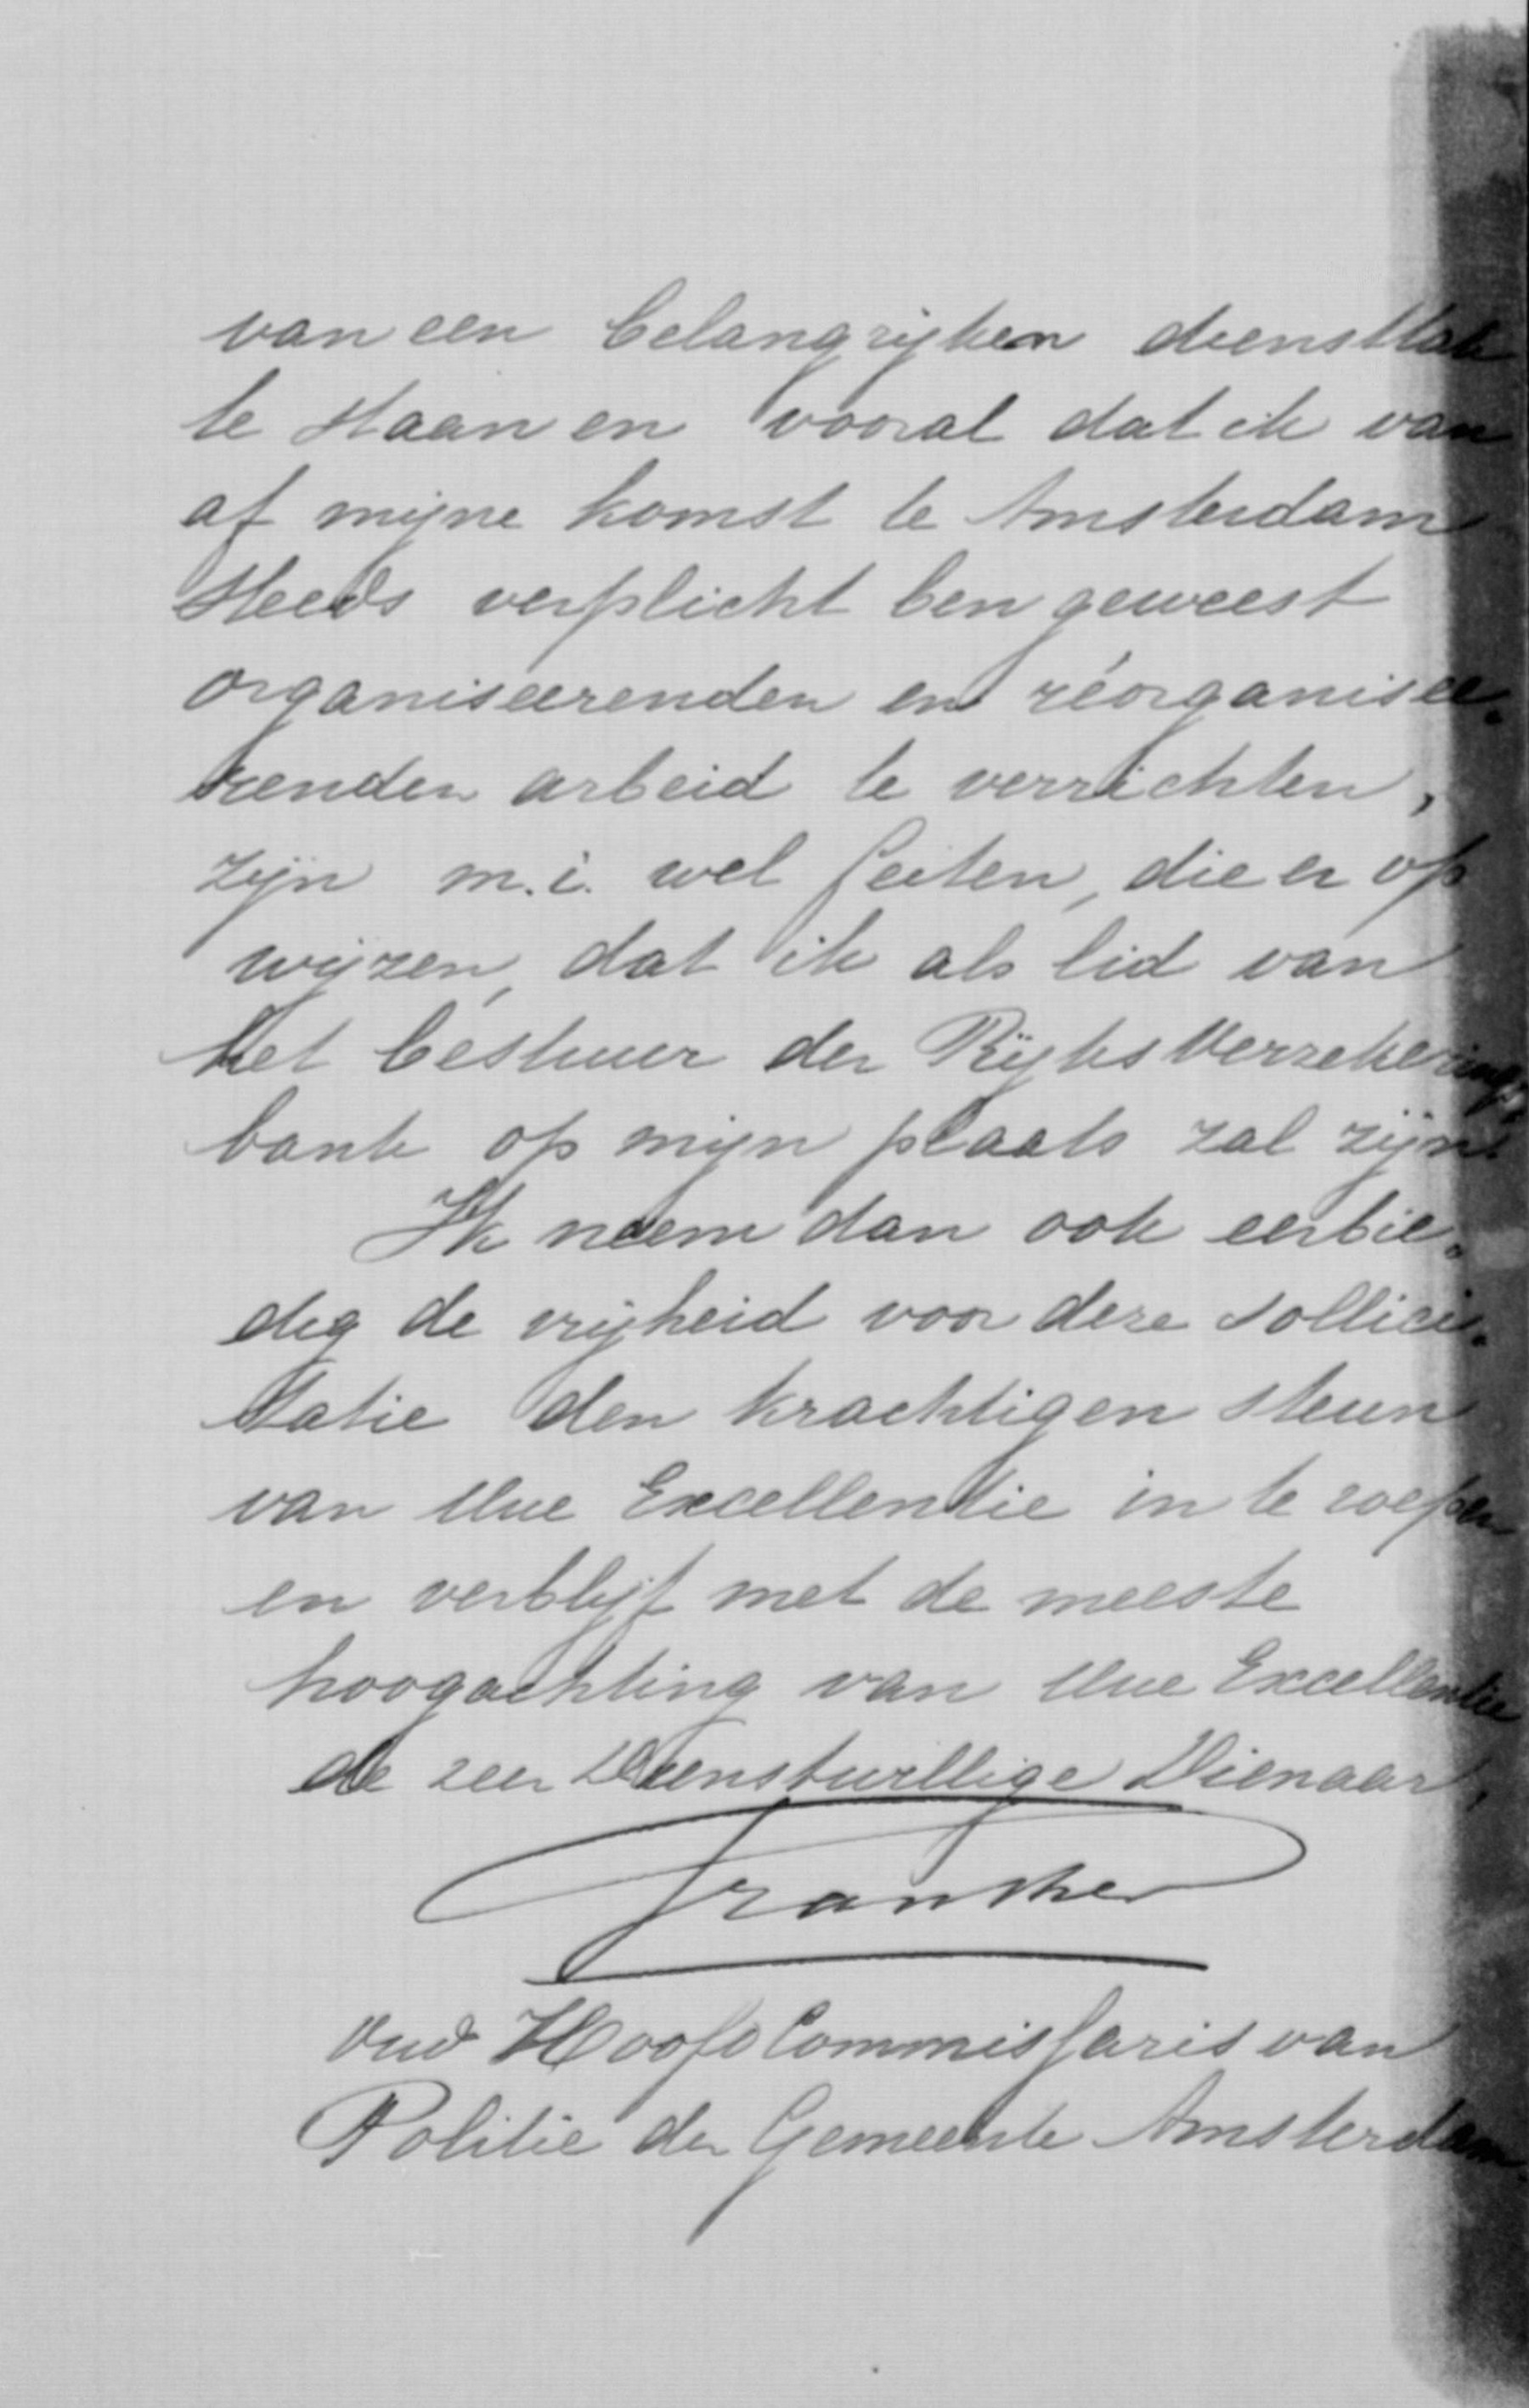 van een belangrijken diensttak
te staan en vooral dat ik van
af mijne komst te Amsterdam
steeds verplicht ben geweest
organiseerenden en réorganisee-
renden arbeid te verrichten,
zijn m.i. wel feiten, die er op
wijzen, dat ik als lid van
het bestuur der Rijks Verzekerings
bank op mijn plaats zal zijn.
Ik neem dan ook eerbie-
dig de vrijheid voor deze sollici-
tatie den krachtigen steun
van Uwe Excellentie in te roepen
en verblijf met de meeste
hoogachting van Uwe Excellentie
de zeer Dienstwillige Dienaar,
Franken
Oud Hoofd Commissaris van
Politie der Gemeente Amsterdam.